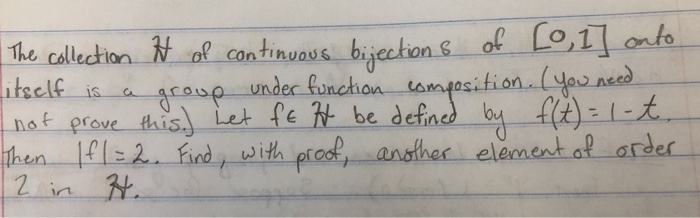 The collection ℋ of continuous bijections of [0,1] onto
itself is a group under function composition. (you need
not prove this.) Let f∈ ℋ be defined by f(t) = 1-t.
Then |f|=2. Find, with proof, another element of order
2 in ℋ.